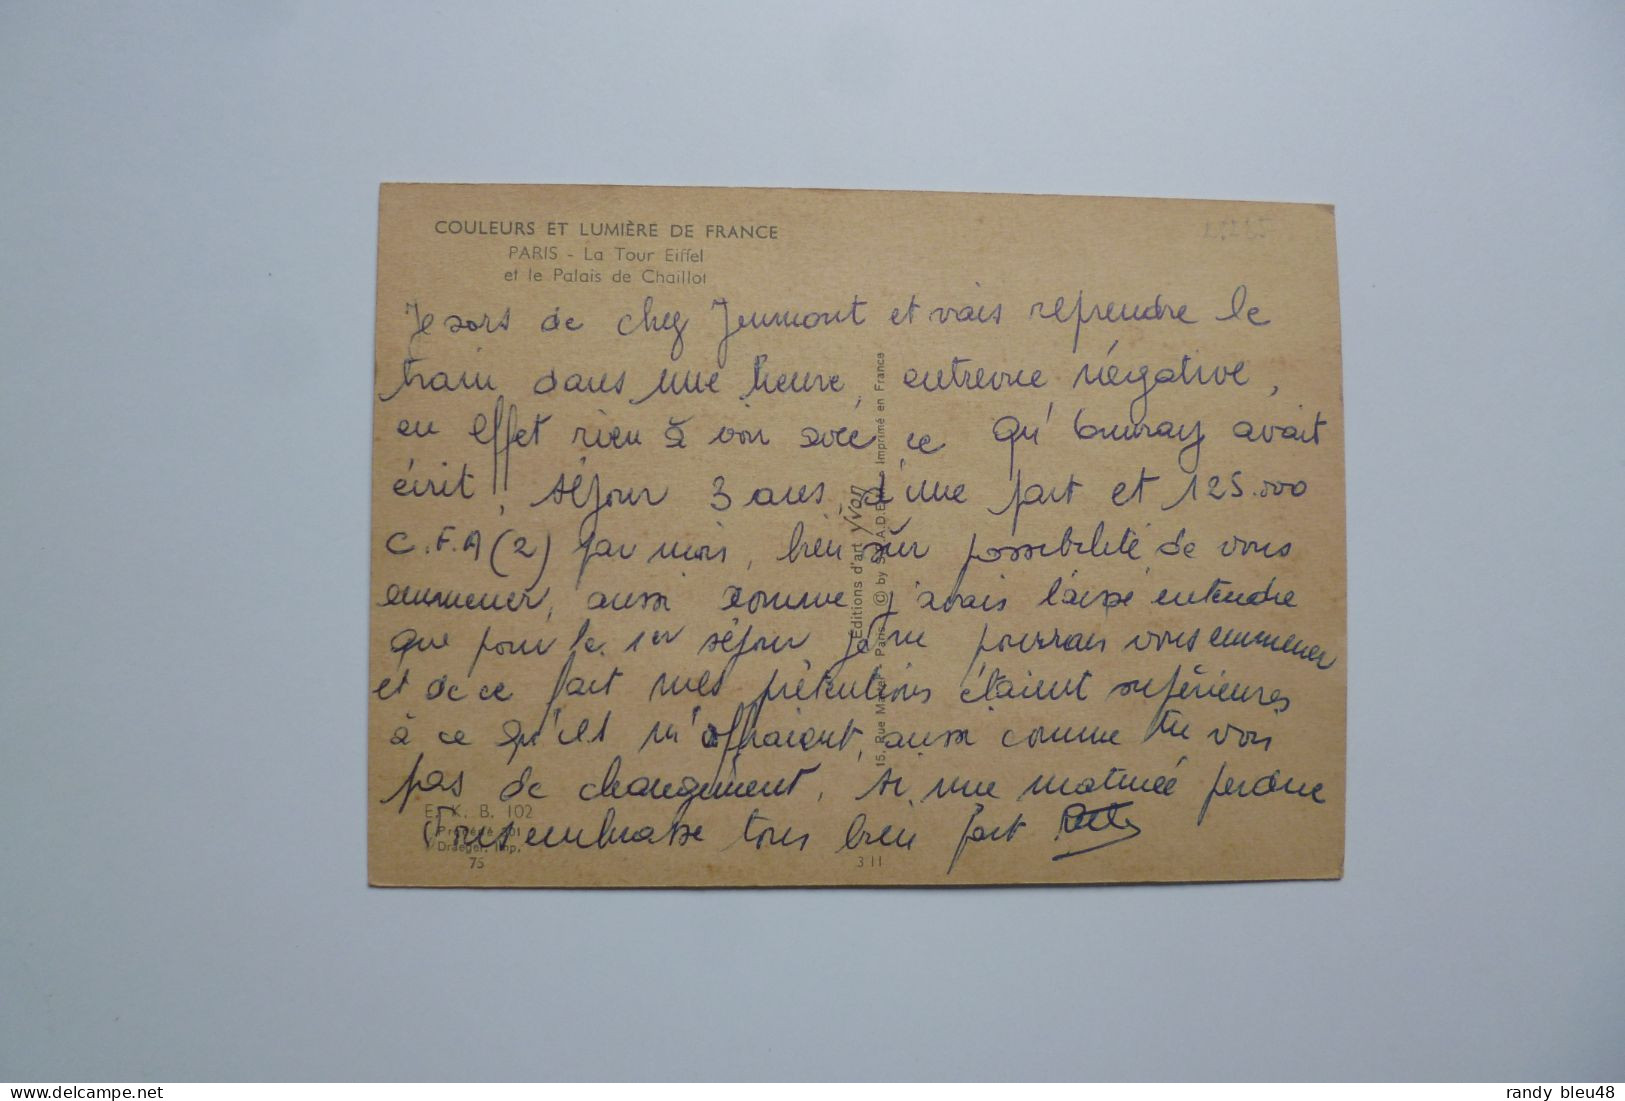 COULEURS ET LUMIÈRE DE FRANCE
PARIS - La Tour Eiffel
et le Palais de Chaillot
Je sors de chez Jeumont et vais reprendre le
train dans une heure, entrevue négative,
en effet rien à voir avec ce qu' avait
écrit, séjour 3 ans d'une part et 125.000
C.F.A (2) par mois, bien sûr possibilité de vous
emmener, aussi comme j'avais laissé entendre
que pour le 1er séjour je ne pourrais vous emmener
et de ce fait mes prétentions étaient supérieures
à ce qu'ils m'offraient, aussi comme tu vois
pas de changement, si une matinée perdue
Vous embrasse tous bien fort
Editions d'art Yvon
15, Rue Martel - Paris © by S.P.A.D.E.M. - Imprimé en France
E. K. B. 102
Propriété
Draeger, Imp.
75
3 11
randy bleu48